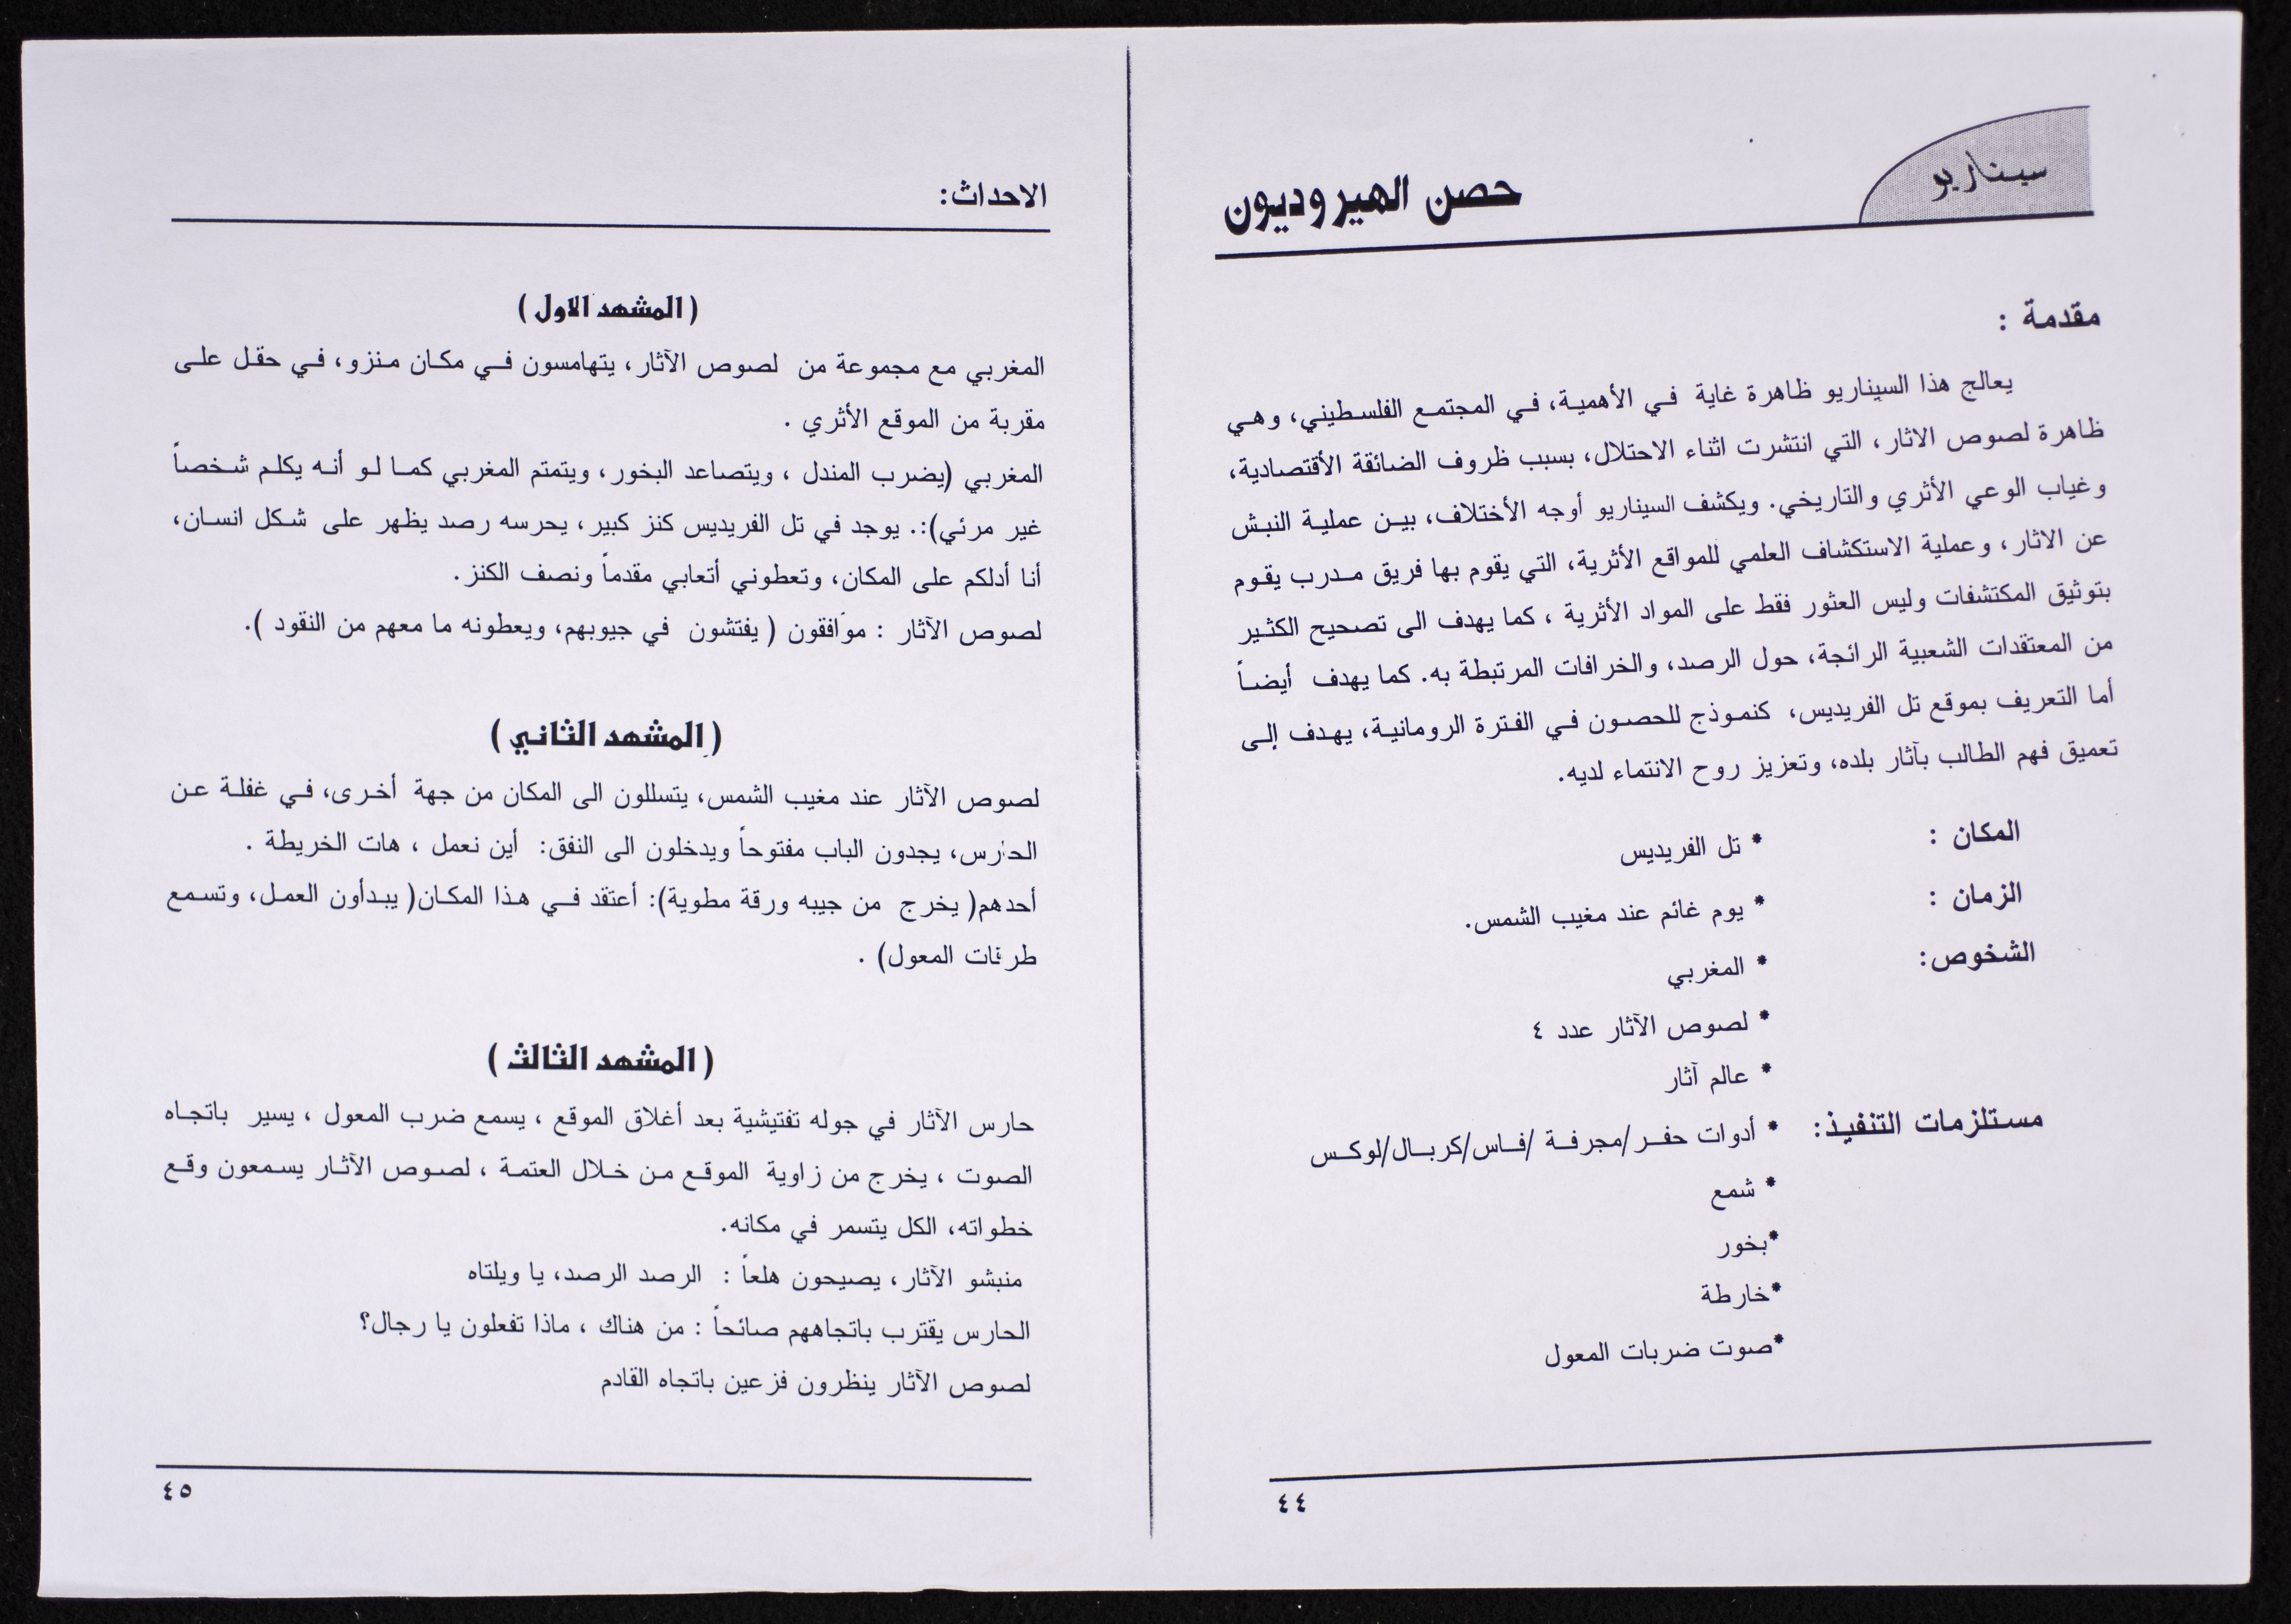 سيناريو
حصن الهيروديون
مقدمة :
يعالج هذا السيناريو ظاهرة غاية في الأهمية، في المجتمع الفلسطيني، وهي
ظاهرة لصوص الاثار، التي انتشرت اثناء الاحتلال، بسبب ظروف الضائقة الأقتصادية،
وغياب الوعي الأثري والتاريخي. ويكشف السيناريو أوجه الأختلاف، بين عملية النبش
عن الاثار، وعملية الاستكشاف العلمي للمواقع الأثرية، التي يقوم بها فريق مدرب يقوم
بتوثيق المكتشفات وليس العثور فقط على المواد الأثرية ، كما يهدف الى تصحيح الكثير
من المعتقدات الشعبية الرائجة، حول الرصد، والخرافات المرتبطة به. كما يهدف أيضاً
أما التعريف بموقع تل الفريديس، كنموذج للحصون في الفترة الرومانية، يهدف إلى
تعميق فهم الطالب بآثار بلده، وتعزيز روح الانتماء لديه.
المكان : * تل الفريديس
الزمان : * يوم غائم عند مغيب الشمس.
الشخوص: * المغربي
* لصوص الآثار عدد ٤
* عالم آثار
مستلزمات التنفيذ: * أدوات حفر/مجرفة /فاس/كربال/لوكس
* شمع
*بخور
*خارطة
*صوت ضربات المعول
٤٤
الاحداث:
( المشهد الاول )
المغربي مع مجموعة من لصوص الآثار، يتهامسون في مكان منزو، في حقل على
مقربة من الموقع الأثري .
المغربي (يضرب المندل ، ويتصاعد البخور، ويتمتم المغربي كما لو أنه يكلم شخصاً
غير مرئي):. يوجد في تل الفريديس كنز كبير، يحرسه رصد يظهر على شكل انسان،
أنا أدلكم على المكان، وتعطوني أتعابي مقدماً ونصف الكنز.
لصوص الآثار : موافقون ( يفتشون في جيوبهم، ويعطونه ما معهم من النقود ).
( المشهد الثاني )
لصوص الآثار عند مغيب الشمس، يتسللون الى المكان من جهة أخرى، في غفلة عن
الحارس، يجدون الباب مفتوحاً ويدخلون الى النفق: أين نعمل ، هات الخريطة .
أحدهم( يخرج من جيبه ورقة مطوية): أعتقد في هذا المكان( يبدأون العمل، وتسمع
طرقات المعول) .
( المشهد الثالث )
حارس الآثار في جوله تفتيشية بعد أغلاق الموقع ، يسمع ضرب المعول ، يسير باتجاه
الصوت ، يخرج من زاوية الموقع من خلال العتمة ، لصوص الآثار يسمعون وقع
خطواته، الكل يتسمر في مكانه.
منبشو الآثار، يصيحون هلعاً : الرصد الرصد، يا ويلتاه
الحارس يقترب باتجاههم صائحاً : من هناك ، ماذا تفعلون يا رجال؟
لصوص الآثار ينظرون فزعين باتجاه القادم
٤٥